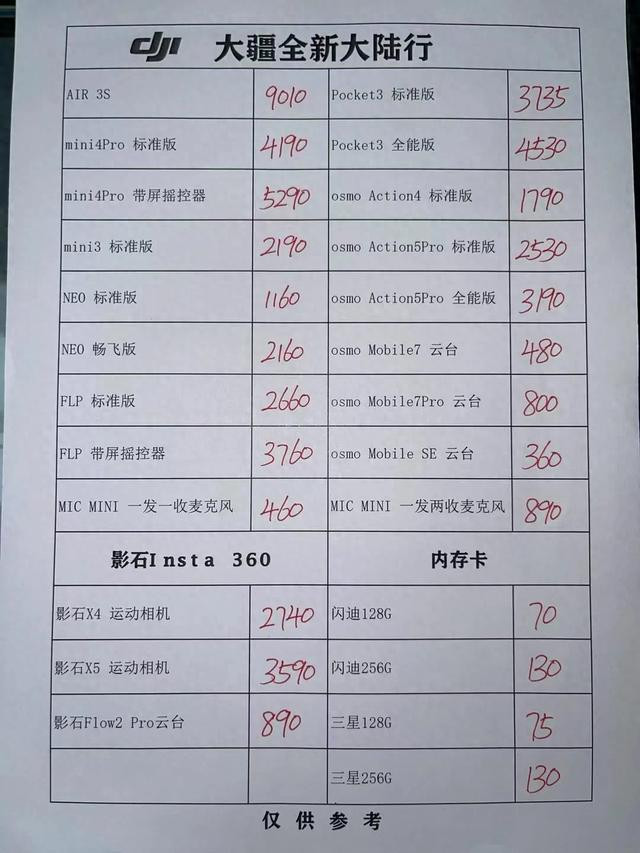 dji 大疆全新大陆行
AIR 3S 9010 Pocket3 标准版 3735
mini4Pro 标准版 4190 Pocket3 全能版 4530
mini4Pro 带屏摇控器 5290 osmo Action4 标准版 1790
mini3 标准版 2190 osmo Action5Pro 标准版 2530
NEO 标准版 1160 osmo Action5Pro 全能版 3190
NEO 畅飞版 2160 osmo Mobile7 云台 480
FLP 标准版 2660 osmo Mobile7Pro 云台 800
FLP 带屏摇控器 3760 osmo Mobile SE 云台 360
MIC MINI 一发一收麦克风 460 MIC MINI 一发两收麦克风 890
影石Insta 360 内存卡
影石X4 运动相机 2740 闪迪128G 70
影石X5 运动相机 3590 闪迪256G 130
影石Flow2 Pro云台 890 三星128G 75
三星256G 130
仅供参考